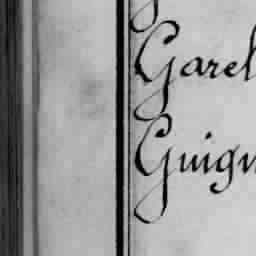 Garel
Guign